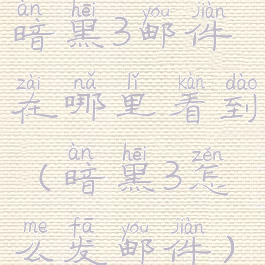 àn hēi yóu jiàn
暗黑3邮件
zài nǎ lǐ kàn dào
在哪里看到
àn hēi zěn
(暗黑3怎
me fā yóu jiàn
么发邮件)